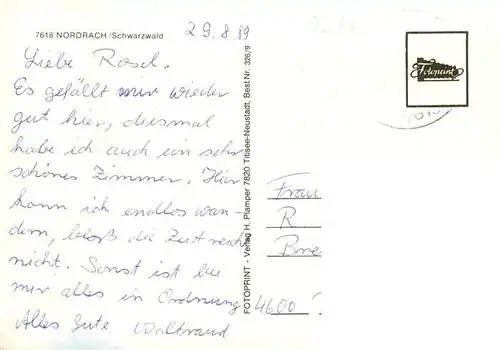 7618 NORDRACH / Schwarzwald
29.8.89
Liebe Rosel.
Es gefällt mir wieder
gut hier, diesmal
habe ich auch ein sehr
schönes Zimmer. Hier
kann ich endlos wan-
dern, bloß die Zeit reicht
nicht. Sonst ist bei
mir alles in Ordnung
Alles Gute Waltraud
FOTOPRINT - Verlag H. Plamper 7820 Titisee-Neustadt, Best.Nr. 326/9
Fotoprint
Frau
R.
Bre
4600